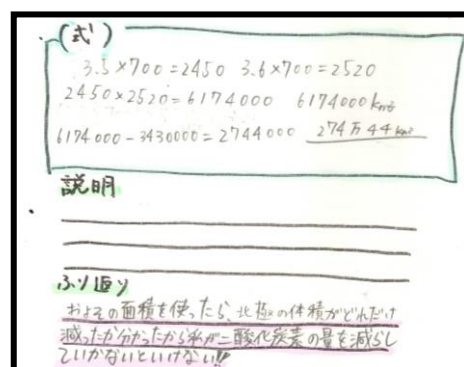 (式)
3.5×700=2450 3.6×700=2520
2450×2520=6174000 6174000km²
6174000-3430000=2744000 274万44km²
説明
ふり返り
およその面積を使ったら、北極の体積がどれだけ
減ったか分かったから私が二酸化炭素の量を減らし
ていかないといけない!!